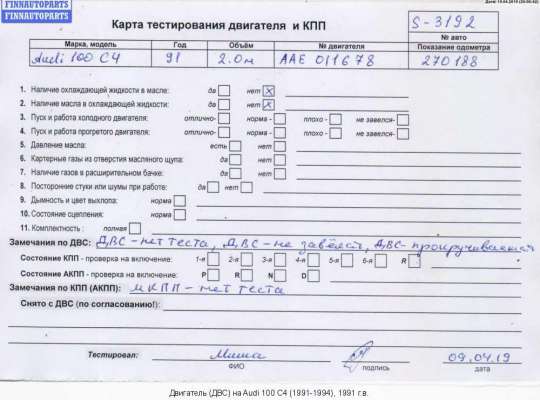 FINNAUTOPARTS
FINNAUTOPARTS
Карта тестирования двигателя и КПП
S-3192
№ авто
Марка, модель Год Объём № двигателя Показание одометра
Audi 100 C4 91 2.0м AAE 011678 270188
1. Наличие охлаждающей жидкости в масле: да нет X
2. Наличие масла в охлаждающей жидкости: да нет X
3. Пуск и работа холодного двигателя: отлично- норма - плохо - не завелся-
4. Пуск и работа прогретого двигателя: отлично- норма - плохо - не завелся-
5. Давление масла: есть нет
6. Картерные газы из отверстия масляного щупа: да нет
7. Наличие газов в расширительном бачке: да нет
8. Посторонние стуки или шумы при работе: да нет
9. Дымность и цвет выхлопа: норма
10. Состояние сцепления: норма
11. Комплектность : полная
Замечания по ДВС: ДВС-нет теста, ДВС-не завёлся, ДВС-прокручивается
Состояние КПП - проверка на включение: 1-я 2-я 3-я 4-я 5-я 6-я R
Состояние АКПП - проверка на включение: P R N D
Замечания по КПП (АКПП): МКПП-нет теста
Снято с ДВС (по согласованию!):
Тестировал: Миша 09.04.19
ФИО подпись дата
Двигатель (ДВС) на Audi 100 C4 (1991-1994), 1991 г.в.